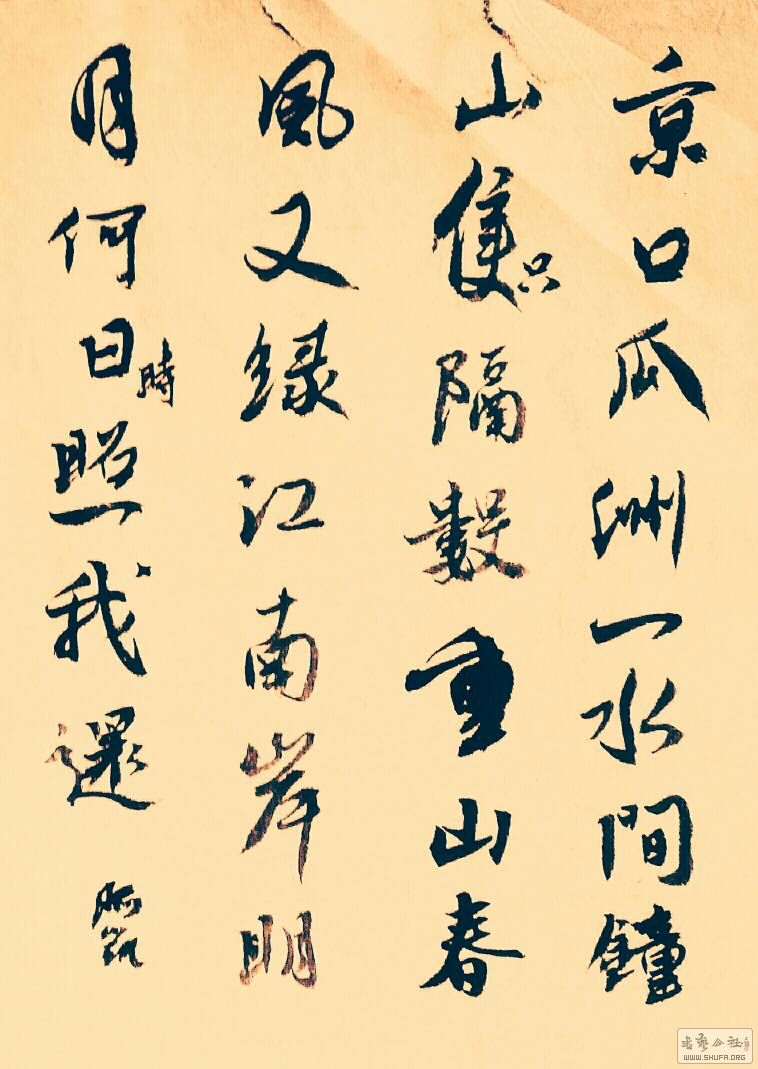 京口瓜洲一水間鐘
山隻只隔數重山春
風又緑江南岸明
月何日時照我還
WWW.SHUFA.ORG